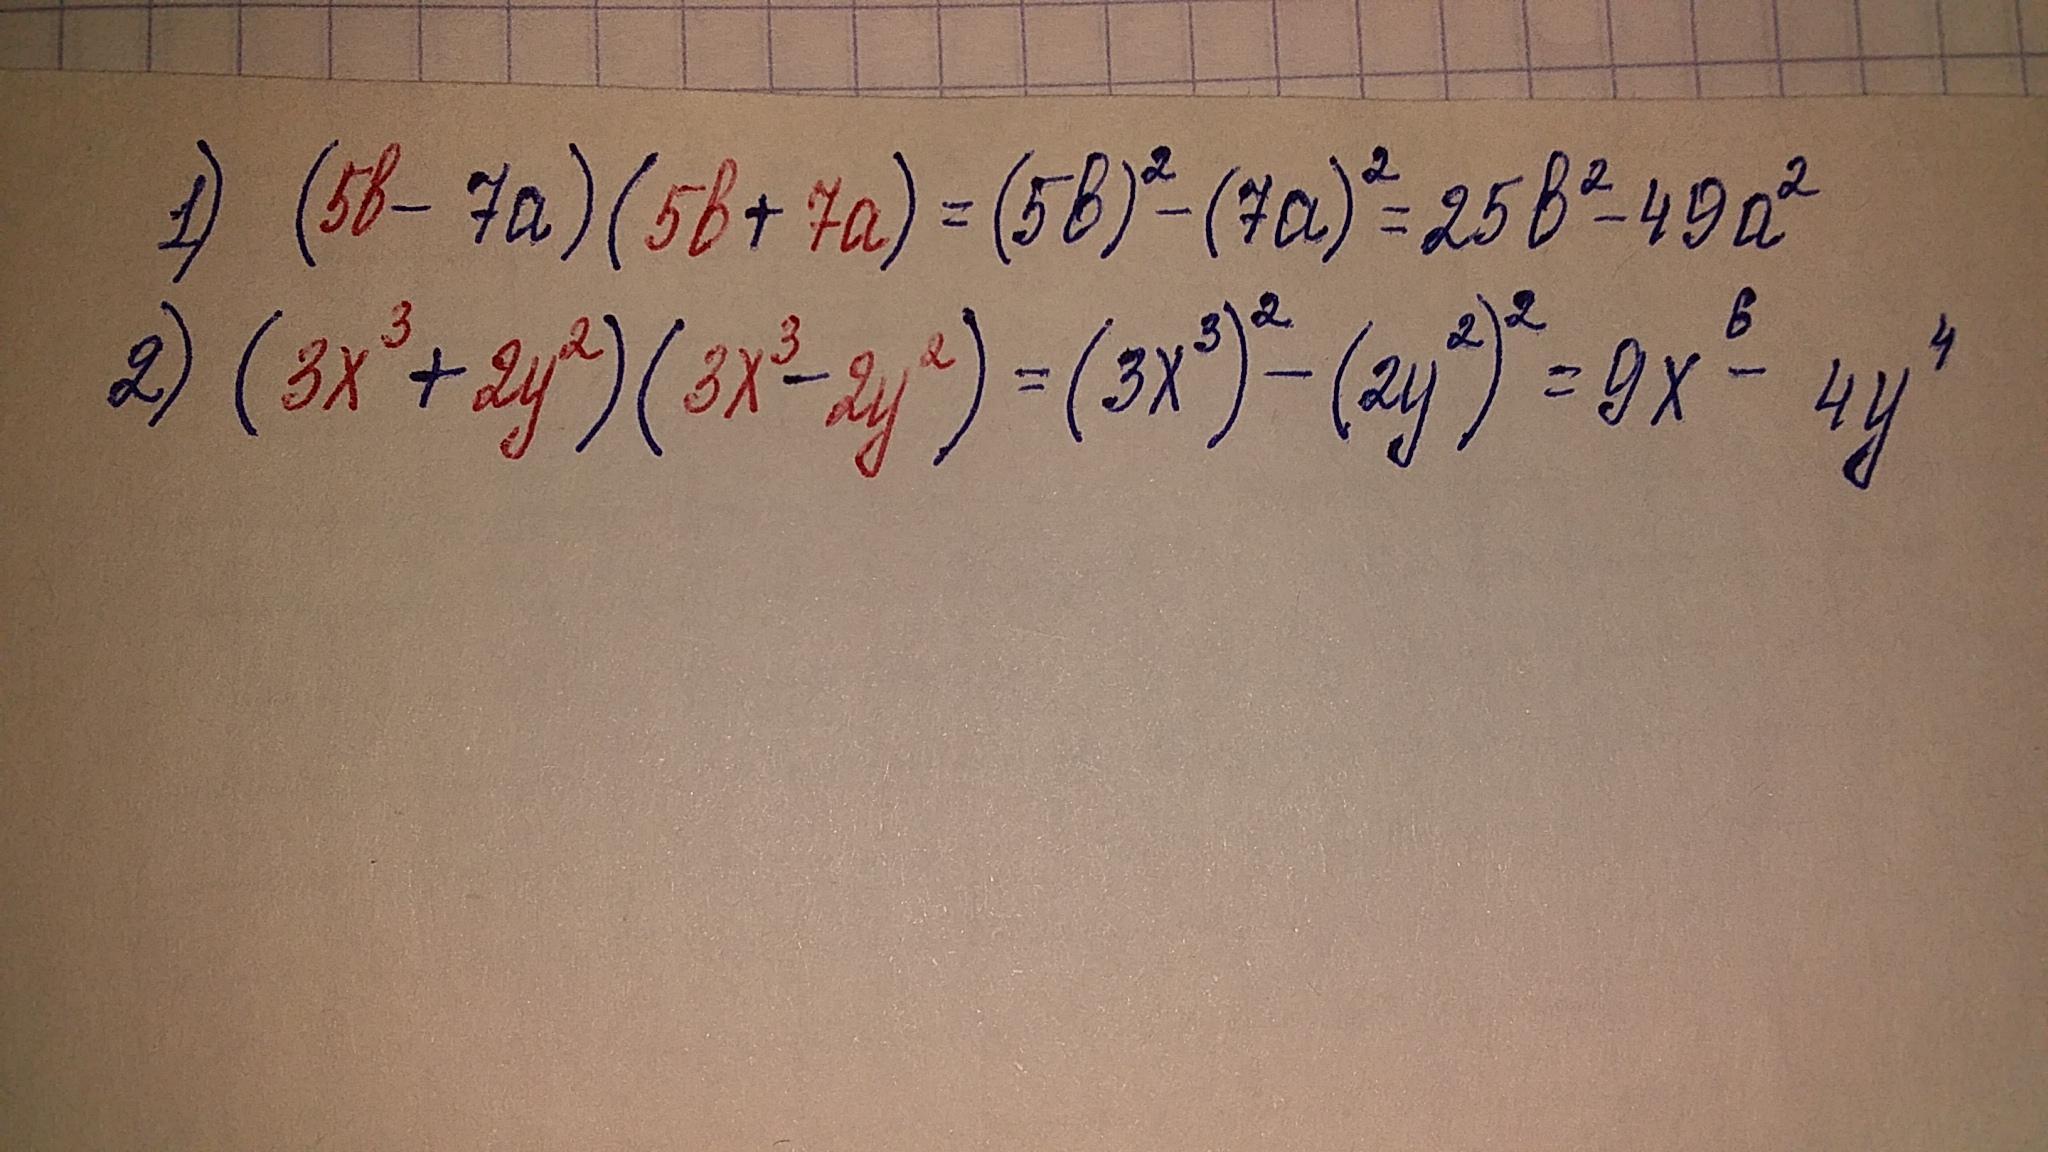 1) (5b - 7a)(5b + 7a) = (5b)² - (7a)² = 25b² - 49a²
2) (3x³ + 2y²)(3x³ - 2y²) = (3x³)² - (2y²)² = 9x⁶ - 4y⁴